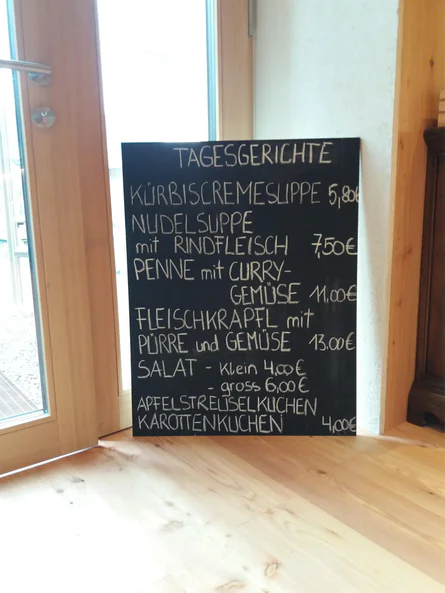 TAGESGERICHTE
KÜRBISCREMESUPPE 5,80€
NUDELSUPPE
mit RINDFLEISCH 7,50€
PENNE mit CURRY-
GEMÜSE 11.00€
FLEISCHKRAPFL mit
PÜRRE und GEMÜSE 13.00€
SALAT - klein 4.00€
- gross 6,00€
APFELSTREUSELKUCHEN
KAROTTENKUCHEN 4,00€